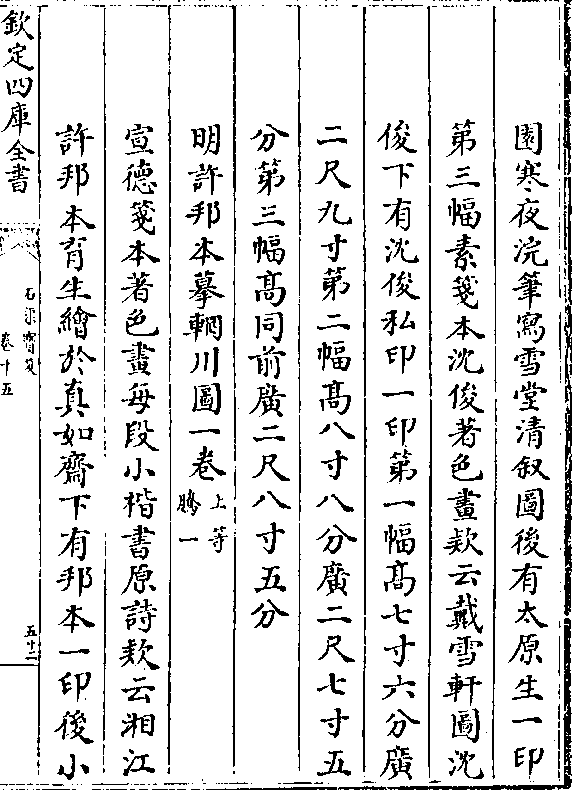 園寒夜浣筆寫雪堂清叙圖後有太原生一印
第三幅素箋本沈俊著色畫欵云戴雪軒圖沈
俊下有沈俊私印一印第一幅髙七寸六分廣
二尺九寸第二幅髙八寸八分廣二尺七寸五
分第三幅髙同前廣二尺八寸五分
明許邦本摹輞川圖一卷 上等 騰一
宣德箋本著色畫每段小楷書原詩欵云湘江
許邦本育生繪於真如齋下有邦本一印後小
欽定四庫全書
石渠寳笈
卷十五
五十二